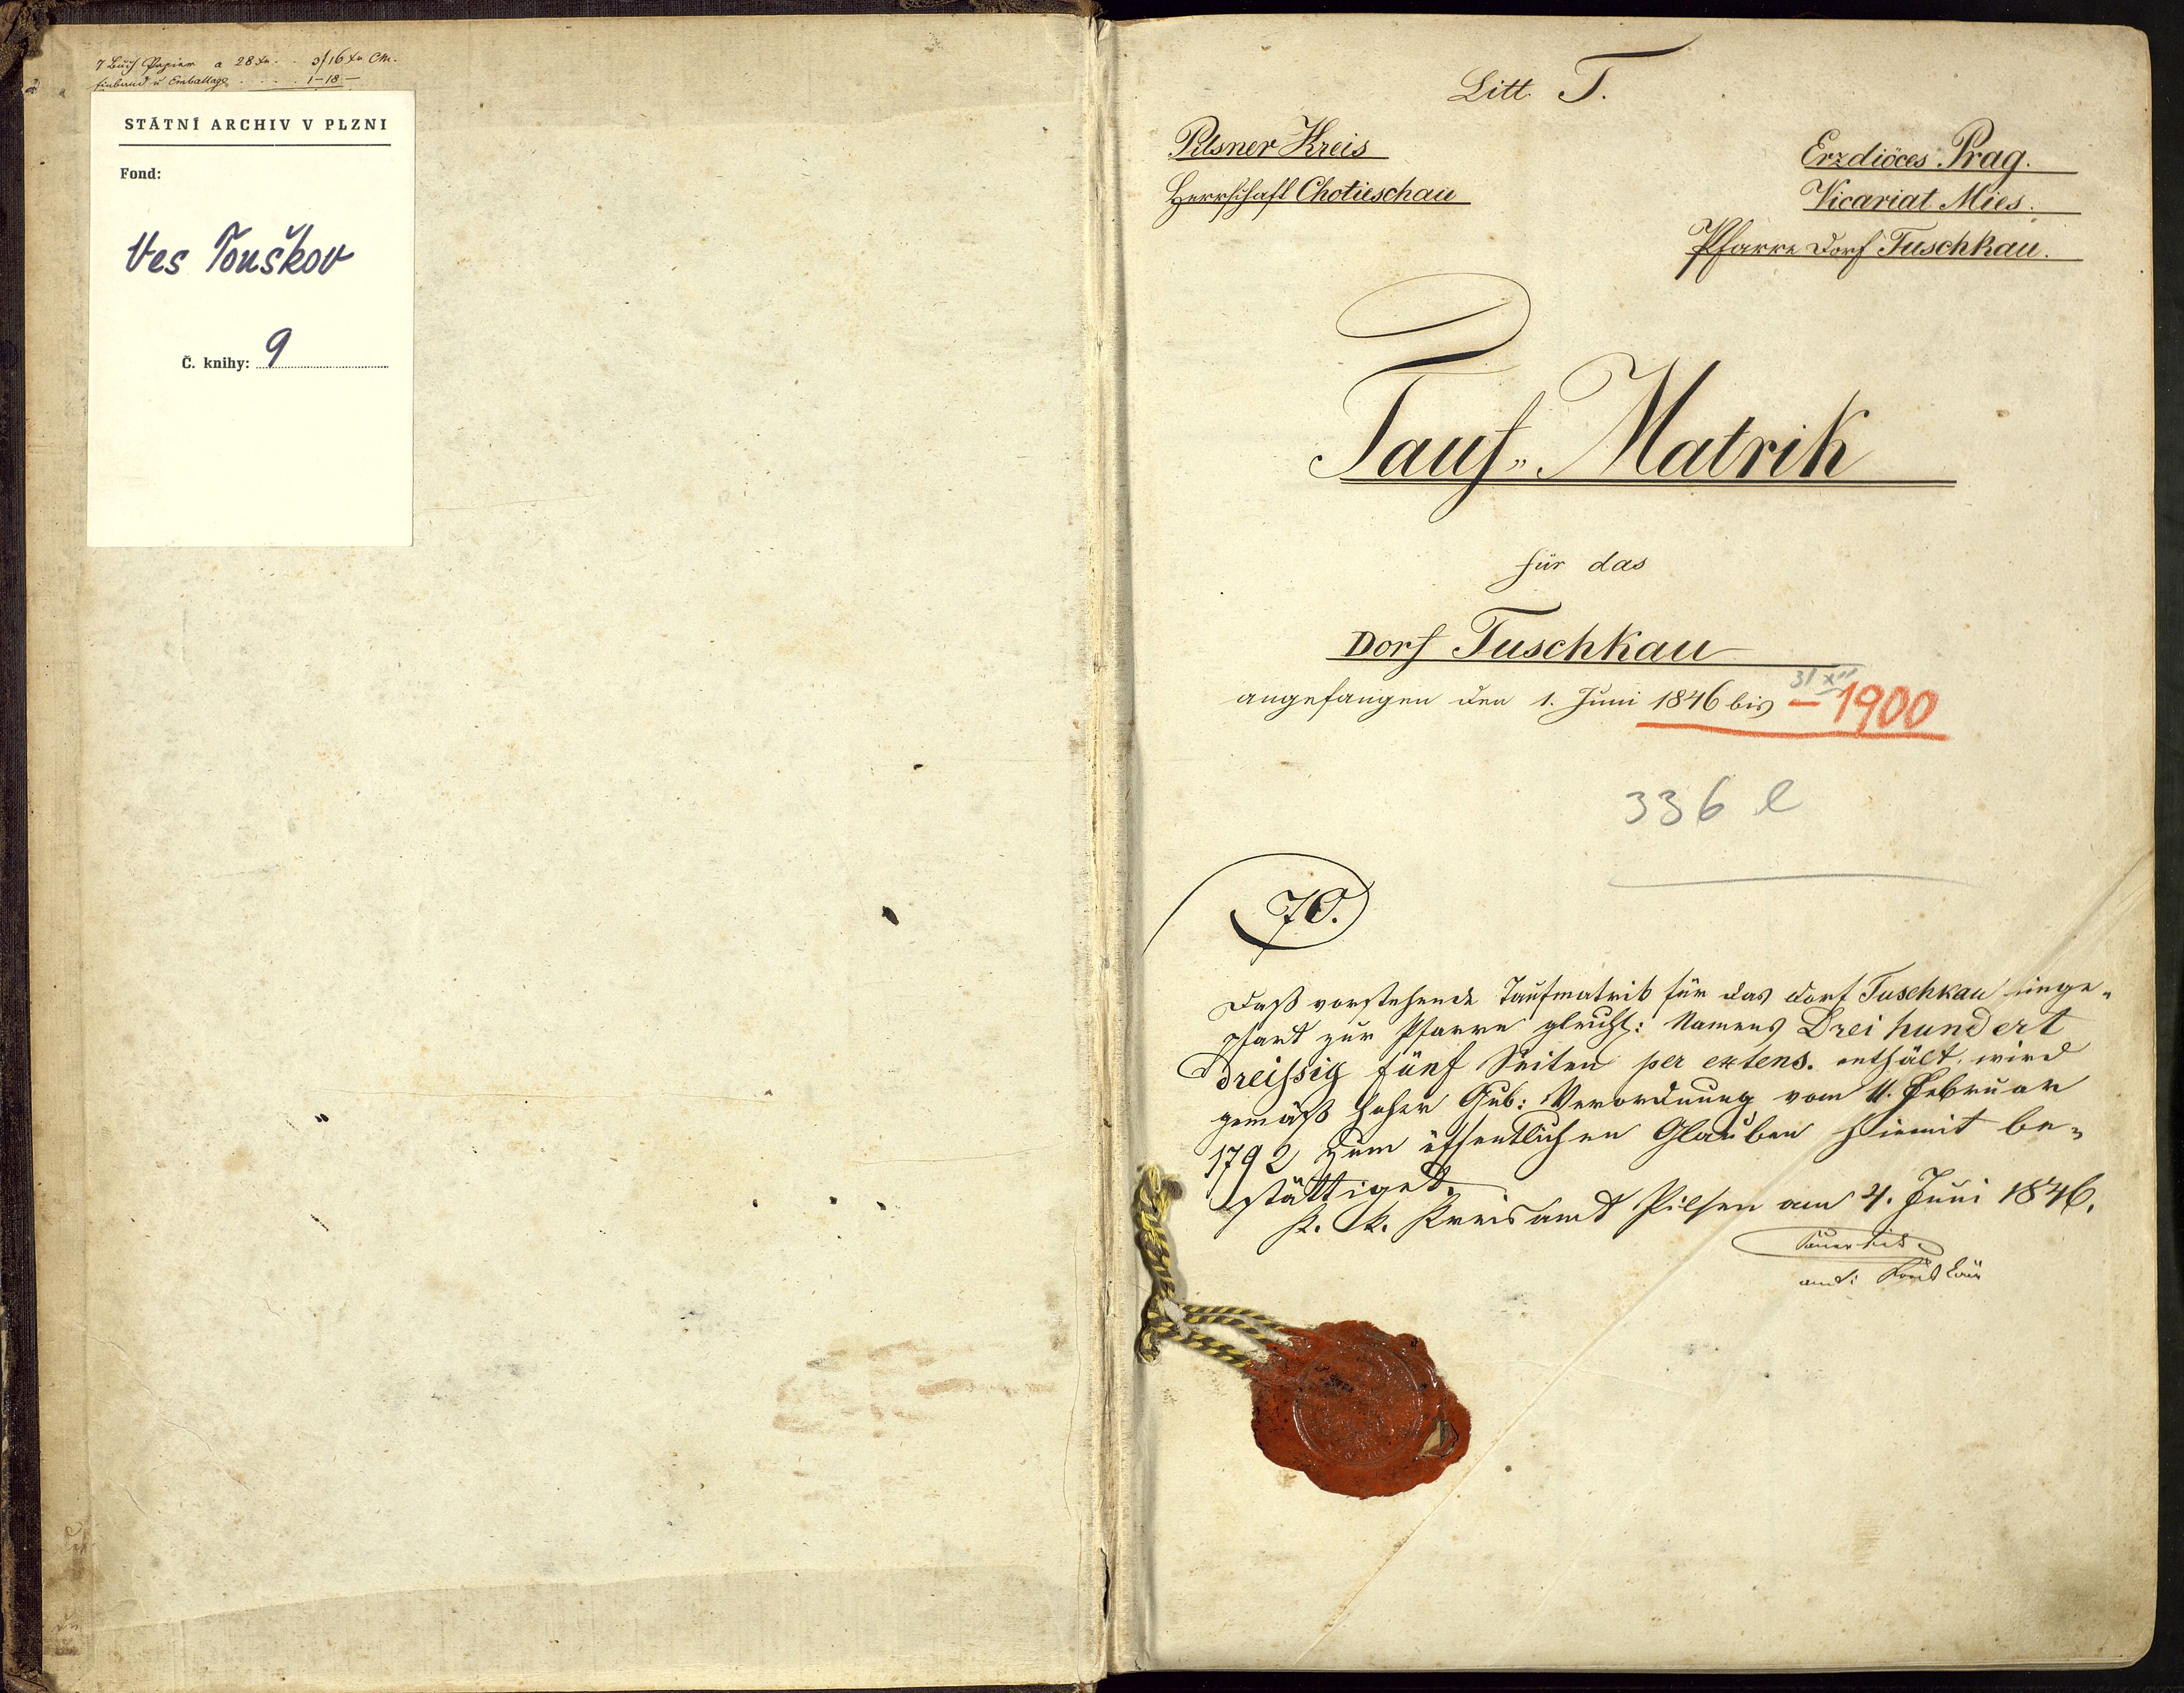 7 Buch Papier a 28 xr. . 3/16 xr CM.
Einband u Emballage . . . . 1-18 -
STÁTNÍ ARCHIV V PLZNI
Fond:
Ves Touškov
Č. knihy: 9
Litt T.
Pilsner Kreis
Herrschaft Chotieschau
Erzdiöces Prag.
Vicariat Mies.
Pfarre Dorf Tuschkau.
Tauf„ Matrik
für das
Dorf Tuschkau
angefangen den 1. Juni 1846 bis 31 XII – 1900
336 l
70.
Daß vorstehende Taufmatrik für das Dorf Tuschkau einge„
pfart zur Pfarre gleich: Namens Drei hundert
dreissig fünf Seiten per extens. enthält, wird
gemäß hoher Gub: Verordnung vom 11. Februar
1792 zum öffentlichen Glauben hiemit be„
stättiget.
K. K. Kreisamt Pilsen am 4. Juni 1846.